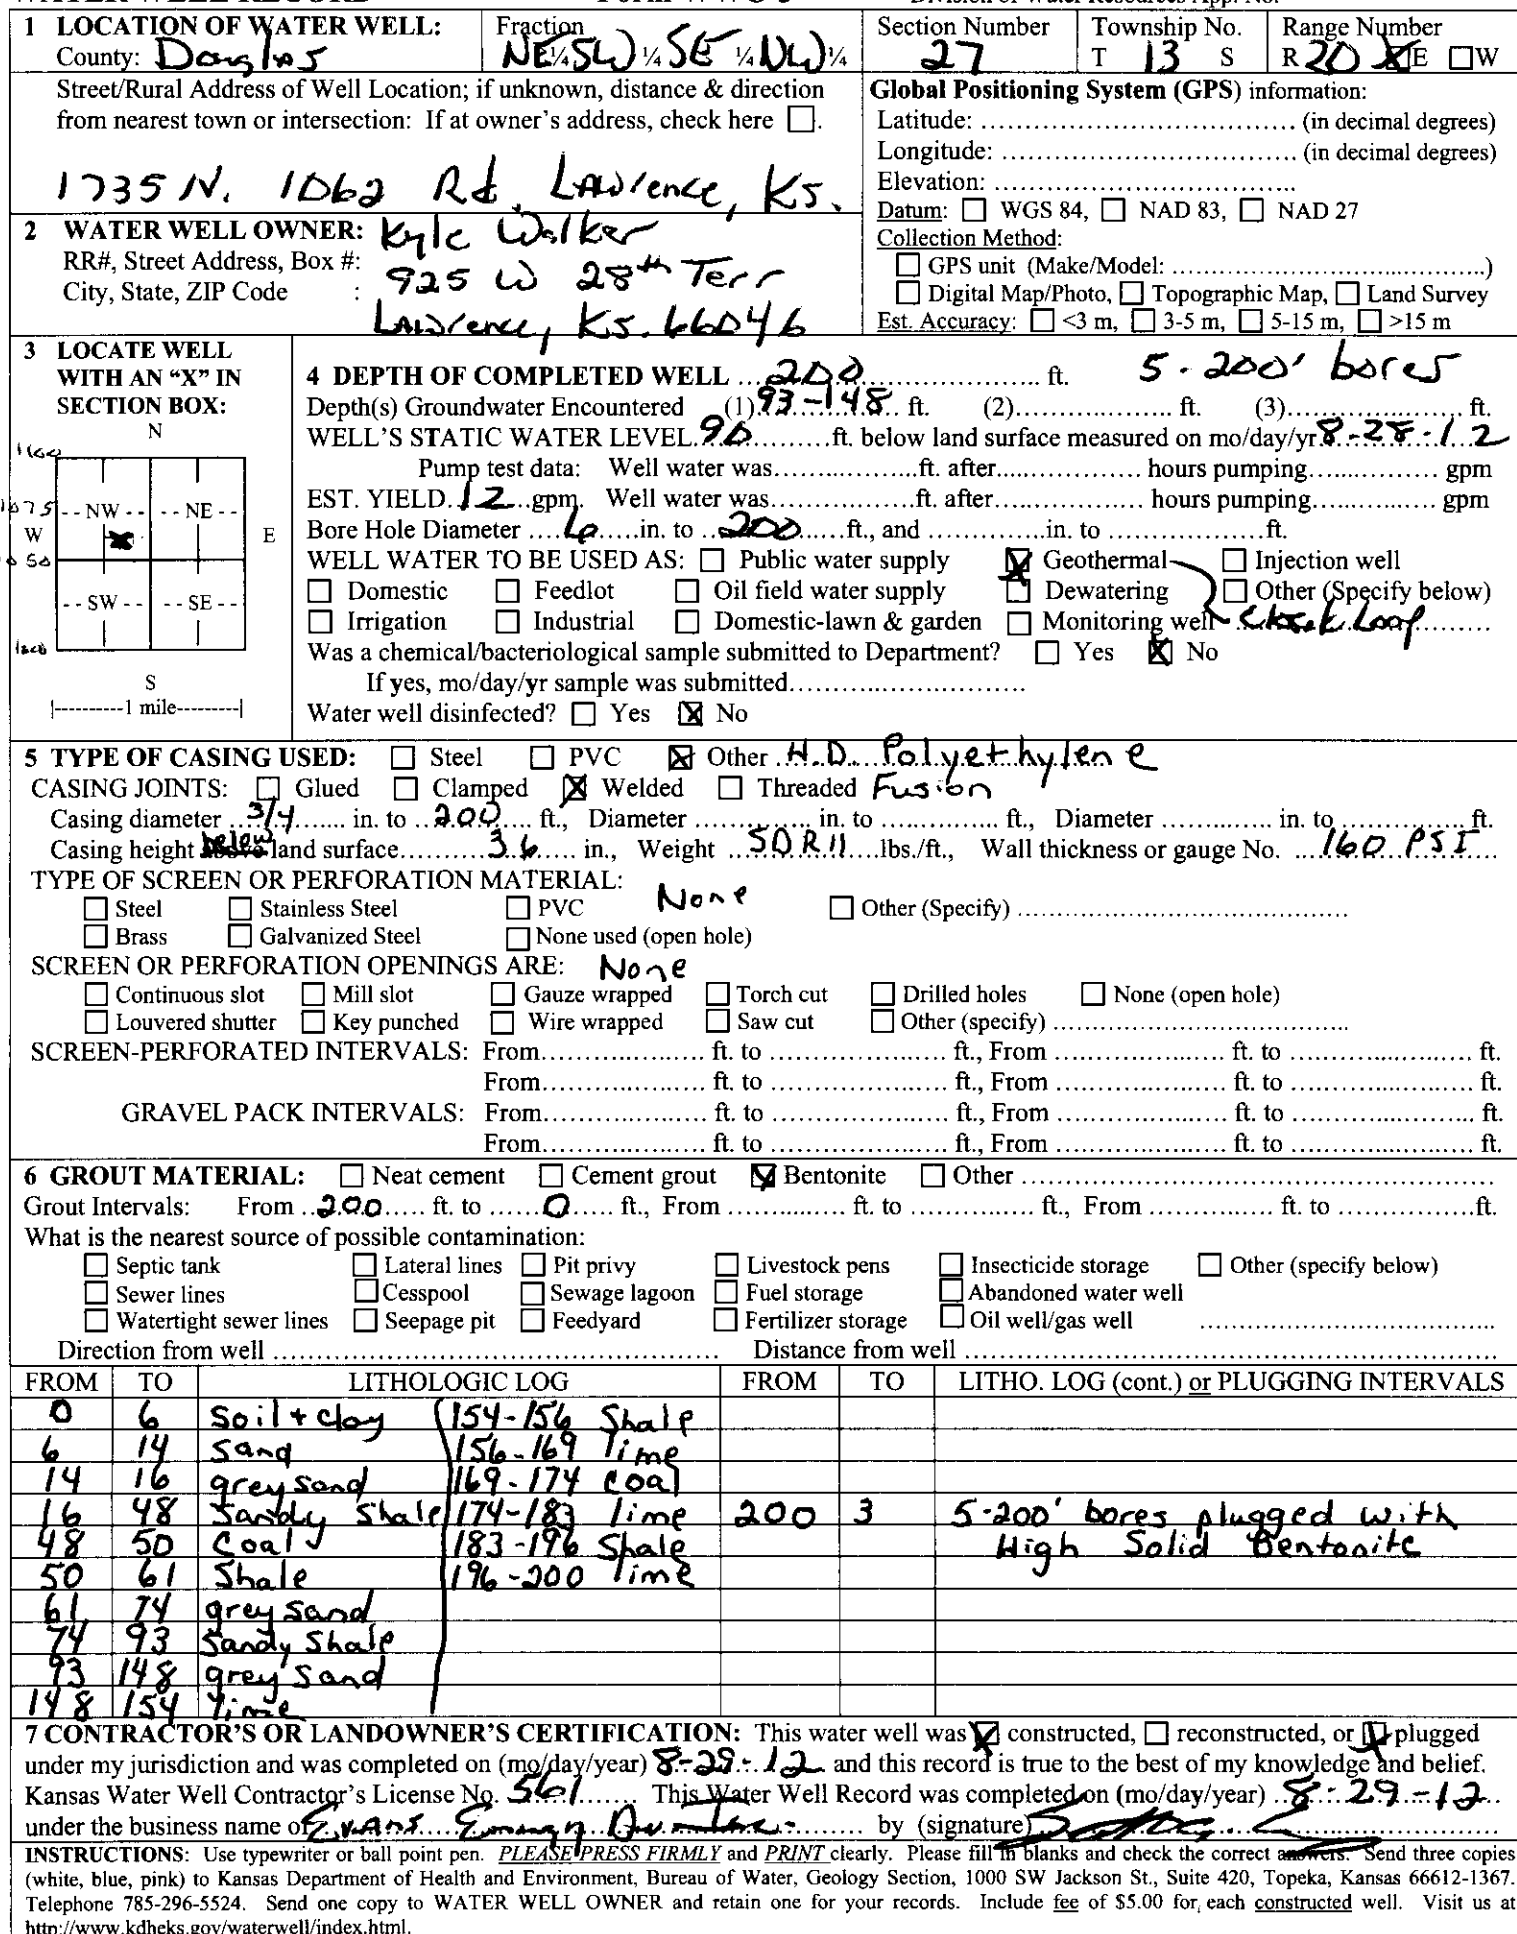 WATER WELL RECORD Form WWC-5 Division of Water Resources App. No.
1 LOCATION OF WATER WELL: Fraction Section Number Township No. Range Number
County: Douglas NE ¼ SW ¼ SE ¼ NW ¼ 27 T 13 S R 20 ☒E ☐W
Street/Rural Address of Well Location; if unknown, distance & direction
from nearest town or intersection: If at owner's address, check here ☐.
1735 N. 1062 Rd. Lawrence, Ks.
Global Positioning System (GPS) information:
Latitude: .......... (in decimal degrees)
Longitude: .......... (in decimal degrees)
Elevation: ..........
Datum: ☐ WGS 84, ☐ NAD 83, ☐ NAD 27
Collection Method:
☐ GPS unit (Make/Model: ..........)
☐ Digital Map/Photo, ☐ Topographic Map, ☐ Land Survey
Est. Accuracy: ☐ <3 m, ☐ 3-5 m, ☐ 5-15 m, ☐ >15 m
2 WATER WELL OWNER: Kyle Walker
RR#, Street Address, Box #: 925 W 28th Terr
City, State, ZIP Code : Lawrence, Ks. 66046
3 LOCATE WELL
WITH AN "X" IN
SECTION BOX:
N
1100
1075 --NW-- --NE--
W X E
1050
--SW-- --SE--
S
|----------1 mile---------|
4 DEPTH OF COMPLETED WELL ...200.......... ft. 5-200' bores
Depth(s) Groundwater Encountered (1) 93-148 ft. (2).......... ft. (3).......... ft.
WELL'S STATIC WATER LEVEL 90 ft. below land surface measured on mo/day/yr 8-28-12
Pump test data: Well water was..........ft. after.......... hours pumping.......... gpm
EST. YIELD 12 gpm. Well water was..........ft. after.......... hours pumping.......... gpm
Bore Hole Diameter 6 in. to 200 ft., and ..........in. to ..........ft.
WELL WATER TO BE USED AS: ☐ Public water supply ☒ Geothermal ☐ Injection well
☐ Domestic ☐ Feedlot ☐ Oil field water supply ☐ Dewatering ☐ Other (Specify below)
☐ Irrigation ☐ Industrial ☐ Domestic-lawn & garden ☐ Monitoring well Loop
Was a chemical/bacteriological sample submitted to Department? ☐ Yes ☒ No
If yes, mo/day/yr sample was submitted..........
Water well disinfected? ☐ Yes ☒ No
5 TYPE OF CASING USED: ☐ Steel ☐ PVC ☒ Other H.D. Polyethylene
CASING JOINTS: ☐ Glued ☐ Clamped ☒ Welded ☐ Threaded Fusion
Casing diameter 3/4 in. to 200 ft., Diameter .......... in. to .......... ft., Diameter .......... in. to .......... ft.
Casing height below land surface 36 in., Weight SDR11 lbs./ft., Wall thickness or gauge No. 160 PSI
TYPE OF SCREEN OR PERFORATION MATERIAL: None
☐ Steel ☐ Stainless Steel ☐ PVC ☐ Other (Specify) ..........
☐ Brass ☐ Galvanized Steel ☐ None used (open hole)
SCREEN OR PERFORATION OPENINGS ARE: None
☐ Continuous slot ☐ Mill slot ☐ Gauze wrapped ☐ Torch cut ☐ Drilled holes ☐ None (open hole)
☐ Louvered shutter ☐ Key punched ☐ Wire wrapped ☐ Saw cut ☐ Other (specify) ..........
SCREEN-PERFORATED INTERVALS: From.......... ft. to .......... ft., From .......... ft. to .......... ft.
From.......... ft. to .......... ft., From .......... ft. to .......... ft.
GRAVEL PACK INTERVALS: From.......... ft. to .......... ft., From .......... ft. to .......... ft.
From.......... ft. to .......... ft., From .......... ft. to .......... ft.
6 GROUT MATERIAL: ☐ Neat cement ☐ Cement grout ☒ Bentonite ☐ Other ..........
Grout Intervals: From 200 ft. to 0 ft., From .......... ft. to .......... ft., From .......... ft. to ..........ft.
What is the nearest source of possible contamination:
☐ Septic tank ☐ Lateral lines ☐ Pit privy ☐ Livestock pens ☐ Insecticide storage ☐ Other (specify below)
☐ Sewer lines ☐ Cesspool ☐ Sewage lagoon ☐ Fuel storage ☐ Abandoned water well
☐ Watertight sewer lines ☐ Seepage pit ☐ Feedyard ☐ Fertilizer storage ☐ Oil well/gas well ..........
Direction from well .......... Distance from well ..........
FROM TO LITHOLOGIC LOG FROM TO LITHO. LOG (cont.) or PLUGGING INTERVALS
0 6 Soil + clay 154-156 Shale
6 14 Sand 156-169 lime
14 16 grey sand 169-174 coal
16 48 Sandy Shale 174-183 lime 200 3 5-200' bores plugged with
48 50 Coal 183-196 Shale High Solid Bentonite
50 61 Shale 196-200 lime
61 74 grey sand
74 93 Sandy Shale
93 148 grey sand
148 154 lime
7 CONTRACTOR'S OR LANDOWNER'S CERTIFICATION: This water well was ☒ constructed, ☐ reconstructed, or ☒ plugged
under my jurisdiction and was completed on (mo/day/year) 8-29-12 and this record is true to the best of my knowledge and belief.
Kansas Water Well Contractor's License No. 561 This Water Well Record was completed on (mo/day/year) 8-29-12
under the business name of Evans Energy by (signature)
INSTRUCTIONS: Use typewriter or ball point pen. PLEASE PRESS FIRMLY and PRINT clearly. Please fill in blanks and check the correct answers. Send three copies
(white, blue, pink) to Kansas Department of Health and Environment, Bureau of Water, Geology Section, 1000 SW Jackson St., Suite 420, Topeka, Kansas 66612-1367.
Telephone 785-296-5524. Send one copy to WATER WELL OWNER and retain one for your records. Include fee of $5.00 for each constructed well. Visit us at
http://www.kdheks.gov/waterwell/index.html.